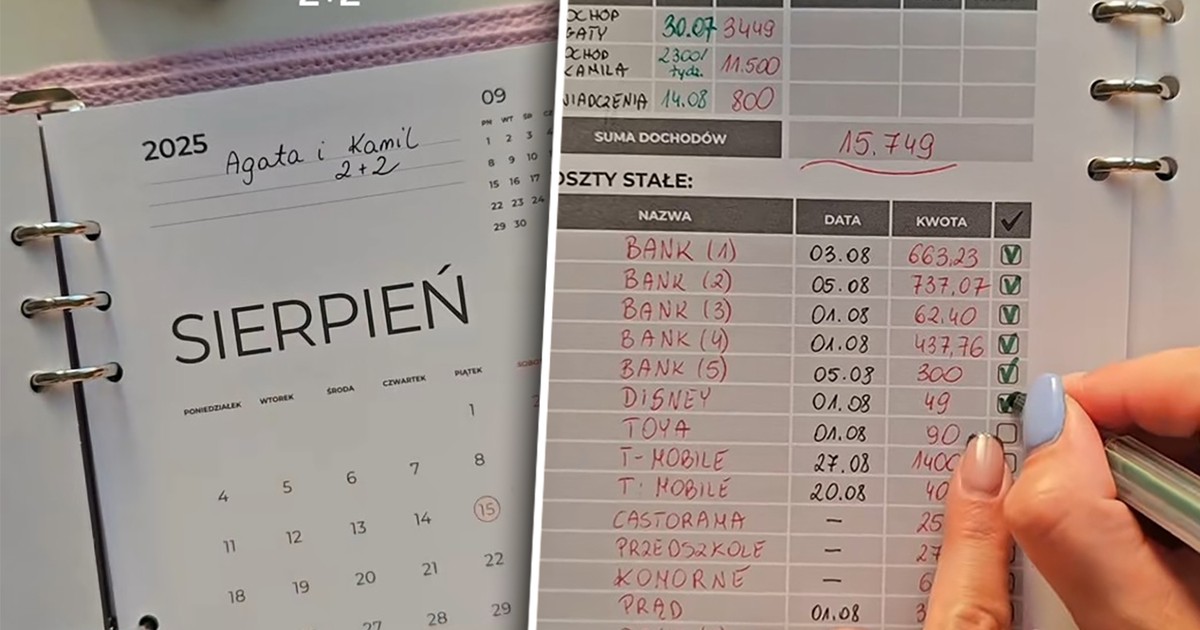 2+2
2025
Agata i Kamil
2+2
09
PN WT ŚR
1 2 3
8 9 10
15 16 17
22 23 24
29 30
SIERPIEŃ
PONIEDZIAŁEK WTOREK ŚRODA CZWARTEK PIĄTEK
1
4 5 6 7 8
11 12 13 14 15
18 19 20 21 22
27 28 29
OCHÓD GATY 30.07 3449
OCHÓD KAMILA 2300/tydz. 11.500
WIADCZENIA 14.08 800
SUMA DOCHODÓW 15.749
OSZTY STAŁE:
NAZWA DATA KWOTA ✓
BANK (1) 03.08 663,23
BANK (2) 05.08 737,07
BANK (3) 01.08 62,40
BANK (4) 01.08 437,76
BANK (5) 05.08 300
DISNEY 01.08 49
TOYA 01.08 90
T-MOBILE 27.08 1400
T-MOBILE 20.08 40
CASTORAMA – 25
PRZEDSZKOLE – 27
KOMORNE – 6
PRĄD 01.08 3